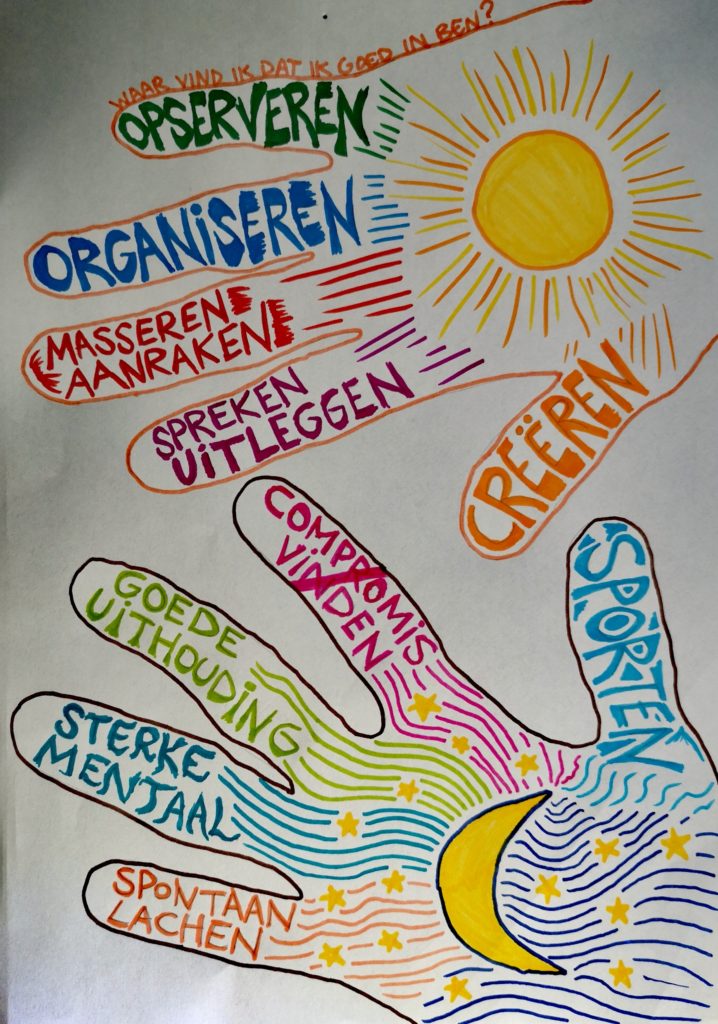 WAAR VIND IK DAT IK GOED IN BEN?
OPSERVEREN
ORGANiSEREN
MASSEREN
AANRAKEN
SPREKEN
UiTLEGGEN
CREËREN
COMPROMIS
ViNDEN
SPORTEN
GOEDE
UiTHOUDiNG
STERKE
MENTAAL
SPONTAAN
LACHEN